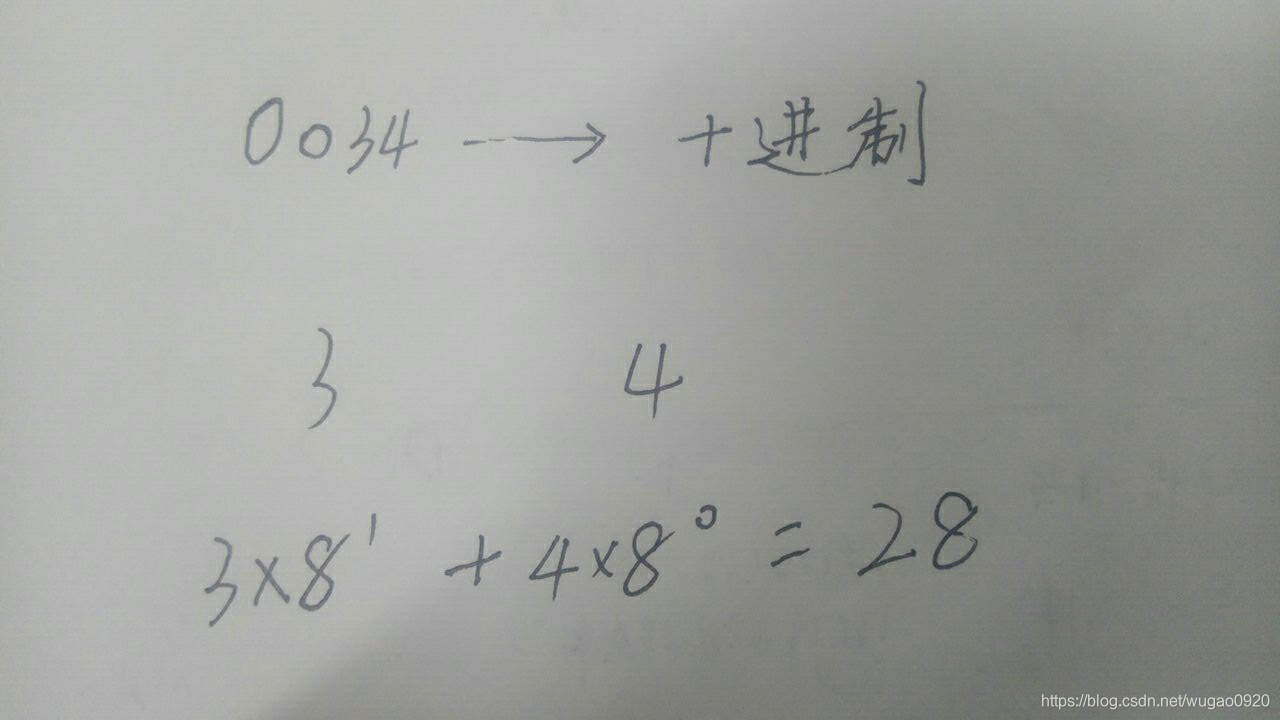 0034 → 十进制
3 4
3×8¹ + 4×8⁰ = 28
https://blog.csdn.net/wugao0920